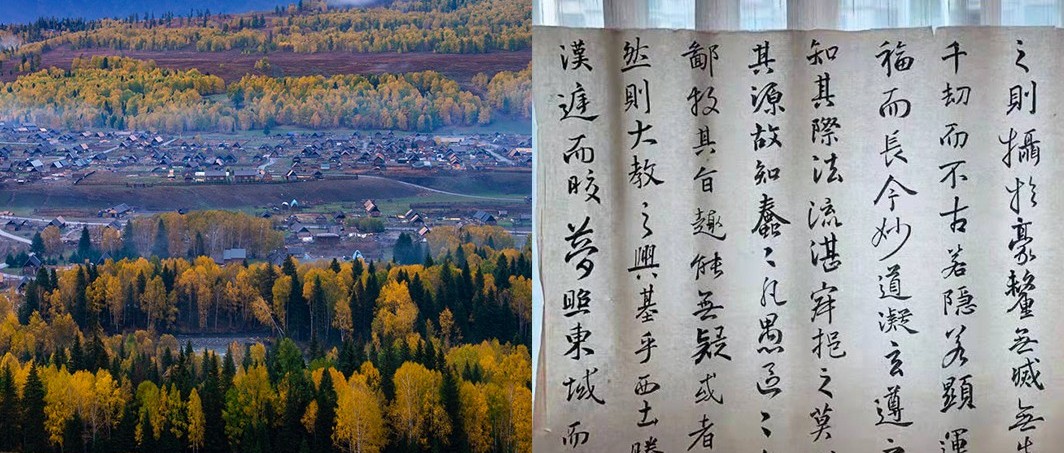 之則攝於豪釐无滅无生
千劫而不古若隱若顯運
福而長今妙道凝玄遵之
知其際法流湛寂挹之莫
其源故知蠢々凡愚區々
鄙投其旨趣能無疑或者
然則大教之興基乎西土騰
漢庭而皎夢照東域而